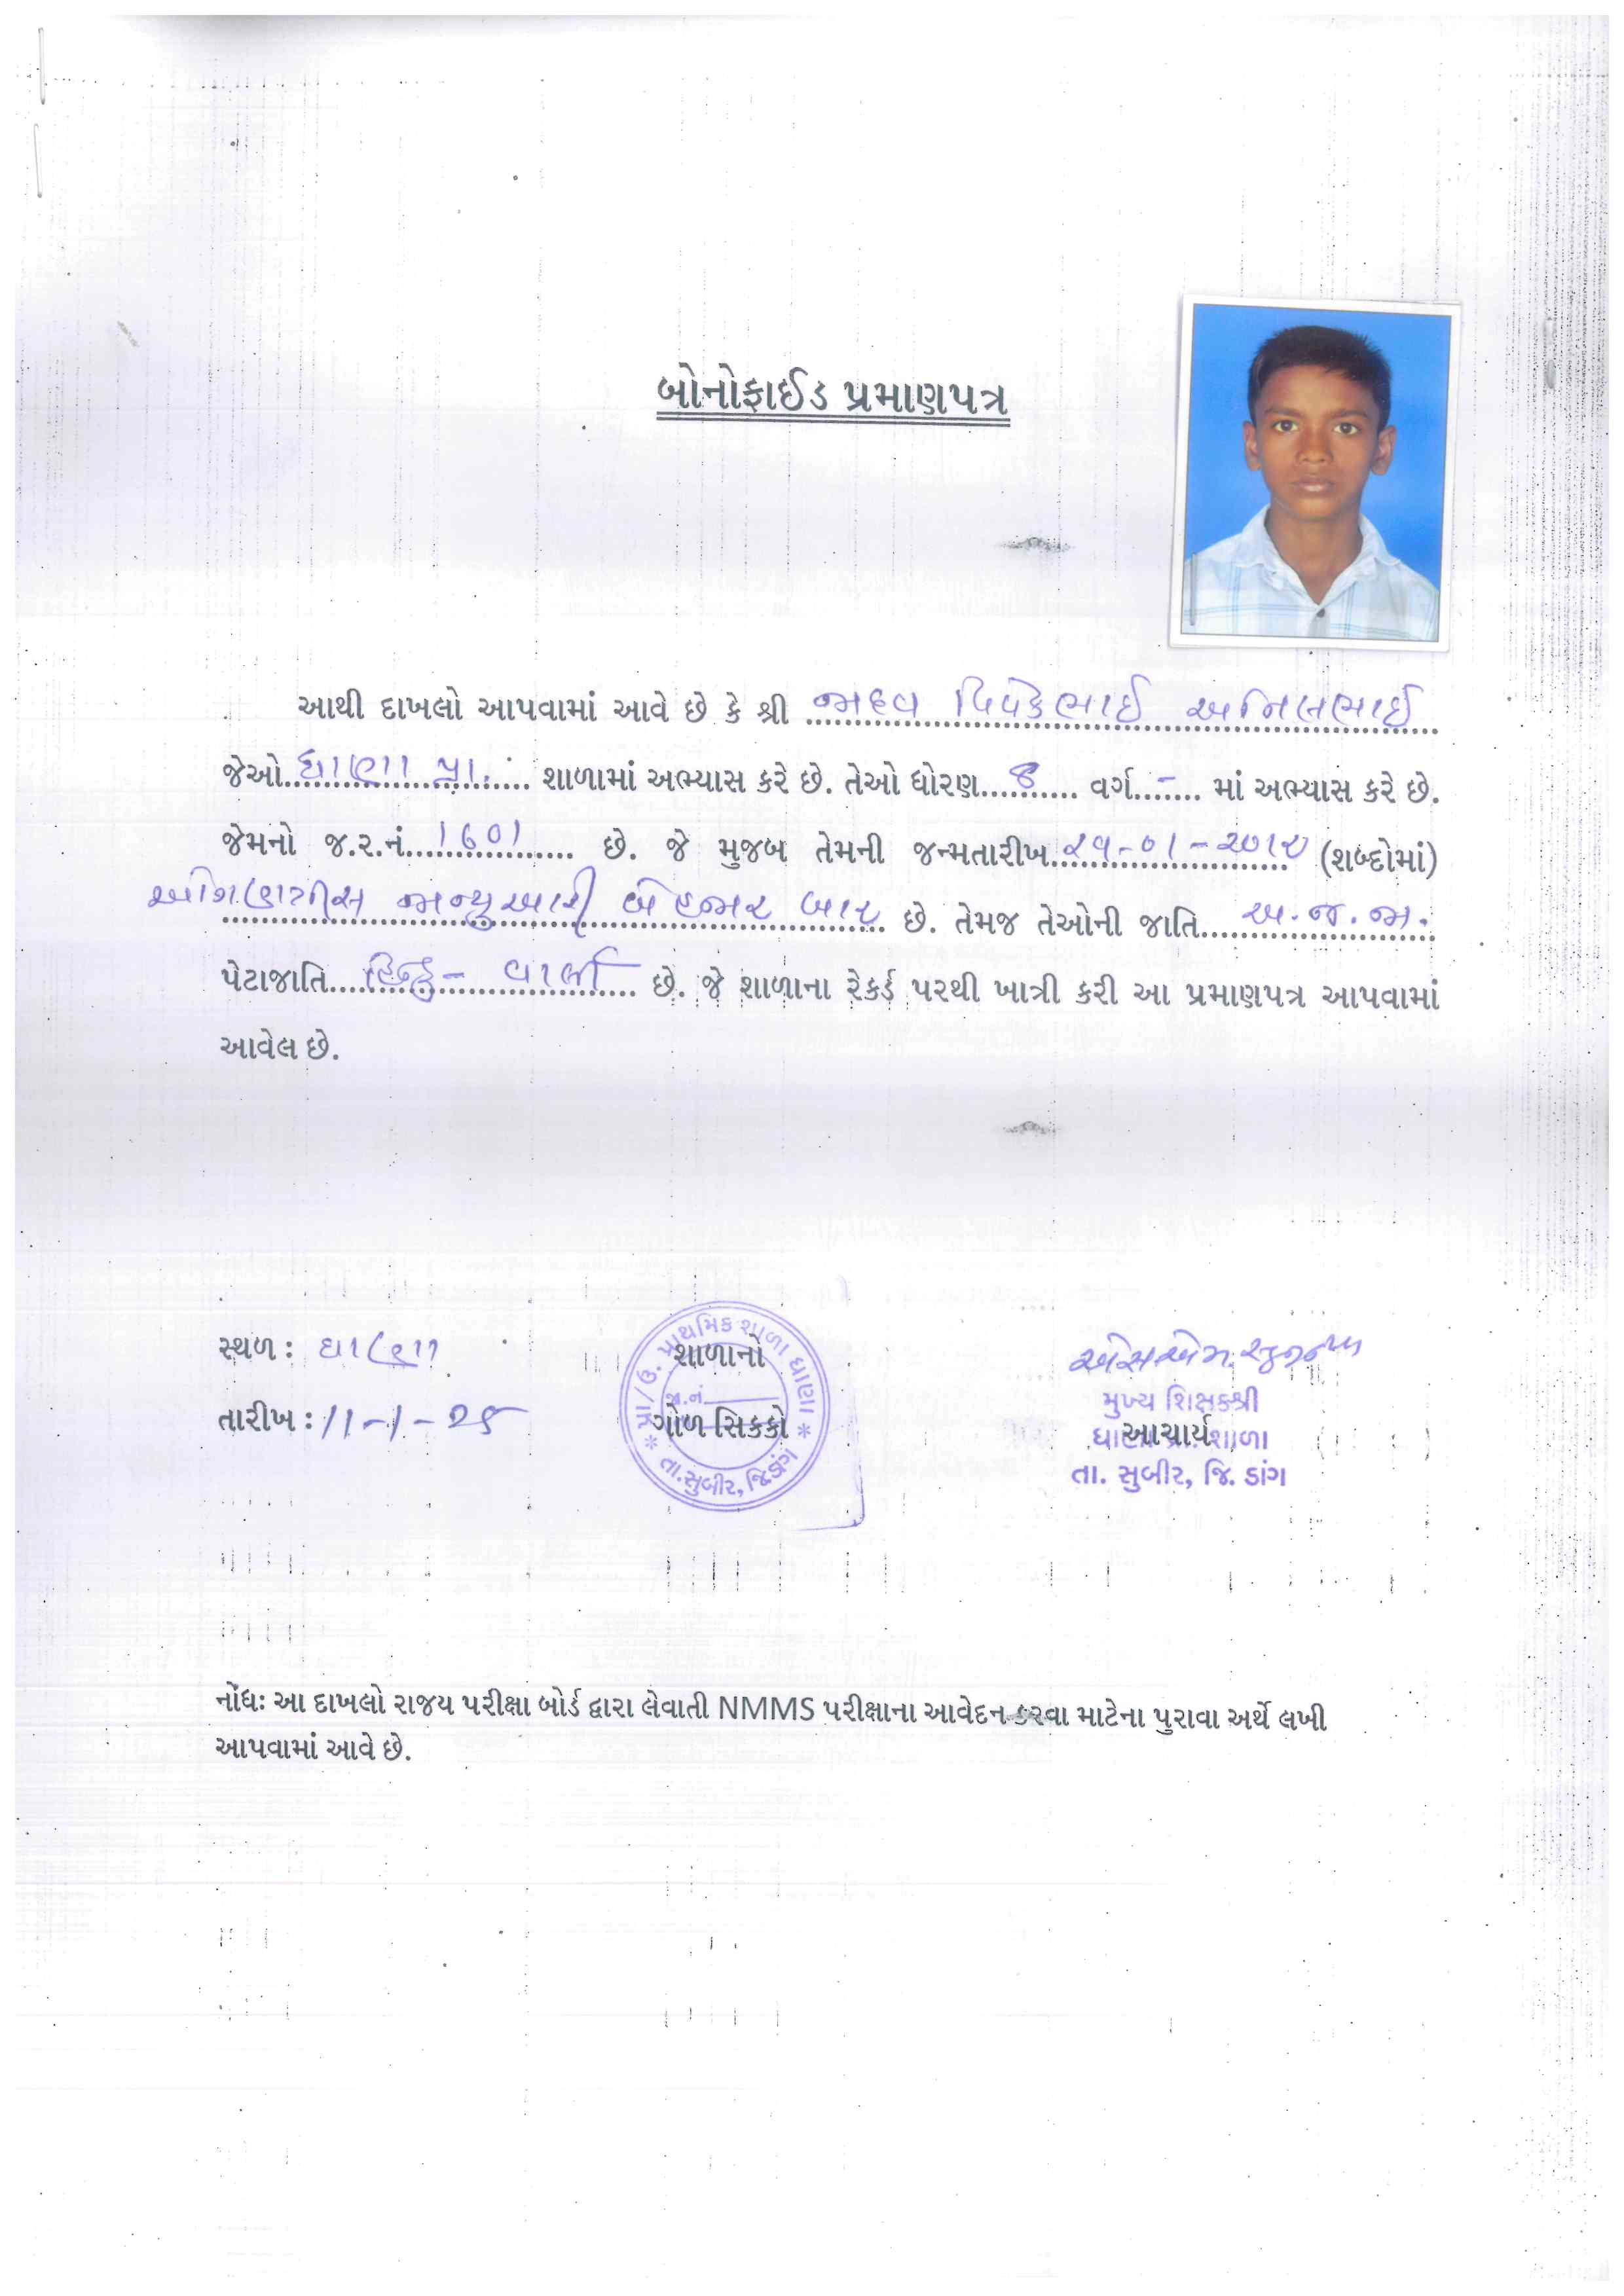 બોનોફાઈડ પ્રમાણપત્ર
આથી દાખલો આપવામાં આવે છે કે શ્રી જાદવ વિવેકભાઈ અનિલભાઈ
જેઓ ઘાણા પ્રા. શાળામાં અભ્યાસ કરે છે. તેઓ ધોરણ 8 વર્ગ - માં અભ્યાસ કરે છે.
જેમનો જ.ર.નં. 1601 છે. જે મુજબ તેમની જન્મતારીખ (શબ્દોમાં)
જાન્યુઆરી બે હજાર બાર છે. તેમજ તેઓની જાતિ અ.જ.જા.
પેટાજાતિ હિન્દુ - વાર્લી છે. જે શાળાના રેકર્ડ પરથી ખાત્રી કરી આ પ્રમાણપત્ર આપવામાં
આવેલ છે.
સ્થળ : ઘાણા
તારીખ : 11-1-25
પ્રા/ઉ. પ્રાથમિક શાળા ઘાણા
જા.નં.
તા.સુબીર, જિ.ડાંગ
શાળાનો
ગોળ સિક્કો
મુખ્ય શિક્ષકશ્રી
ઘાણા પ્રા. શાળા
આચાર્ય
તા. સુબીર, જિ. ડાંગ
નોંધઃ આ દાખલો રાજય પરીક્ષા બોર્ડ દ્વારા લેવાતી NMMS પરીક્ષાના આવેદન કરવા માટેના પુરાવા અર્થે લખી
આપવામાં આવે છે.